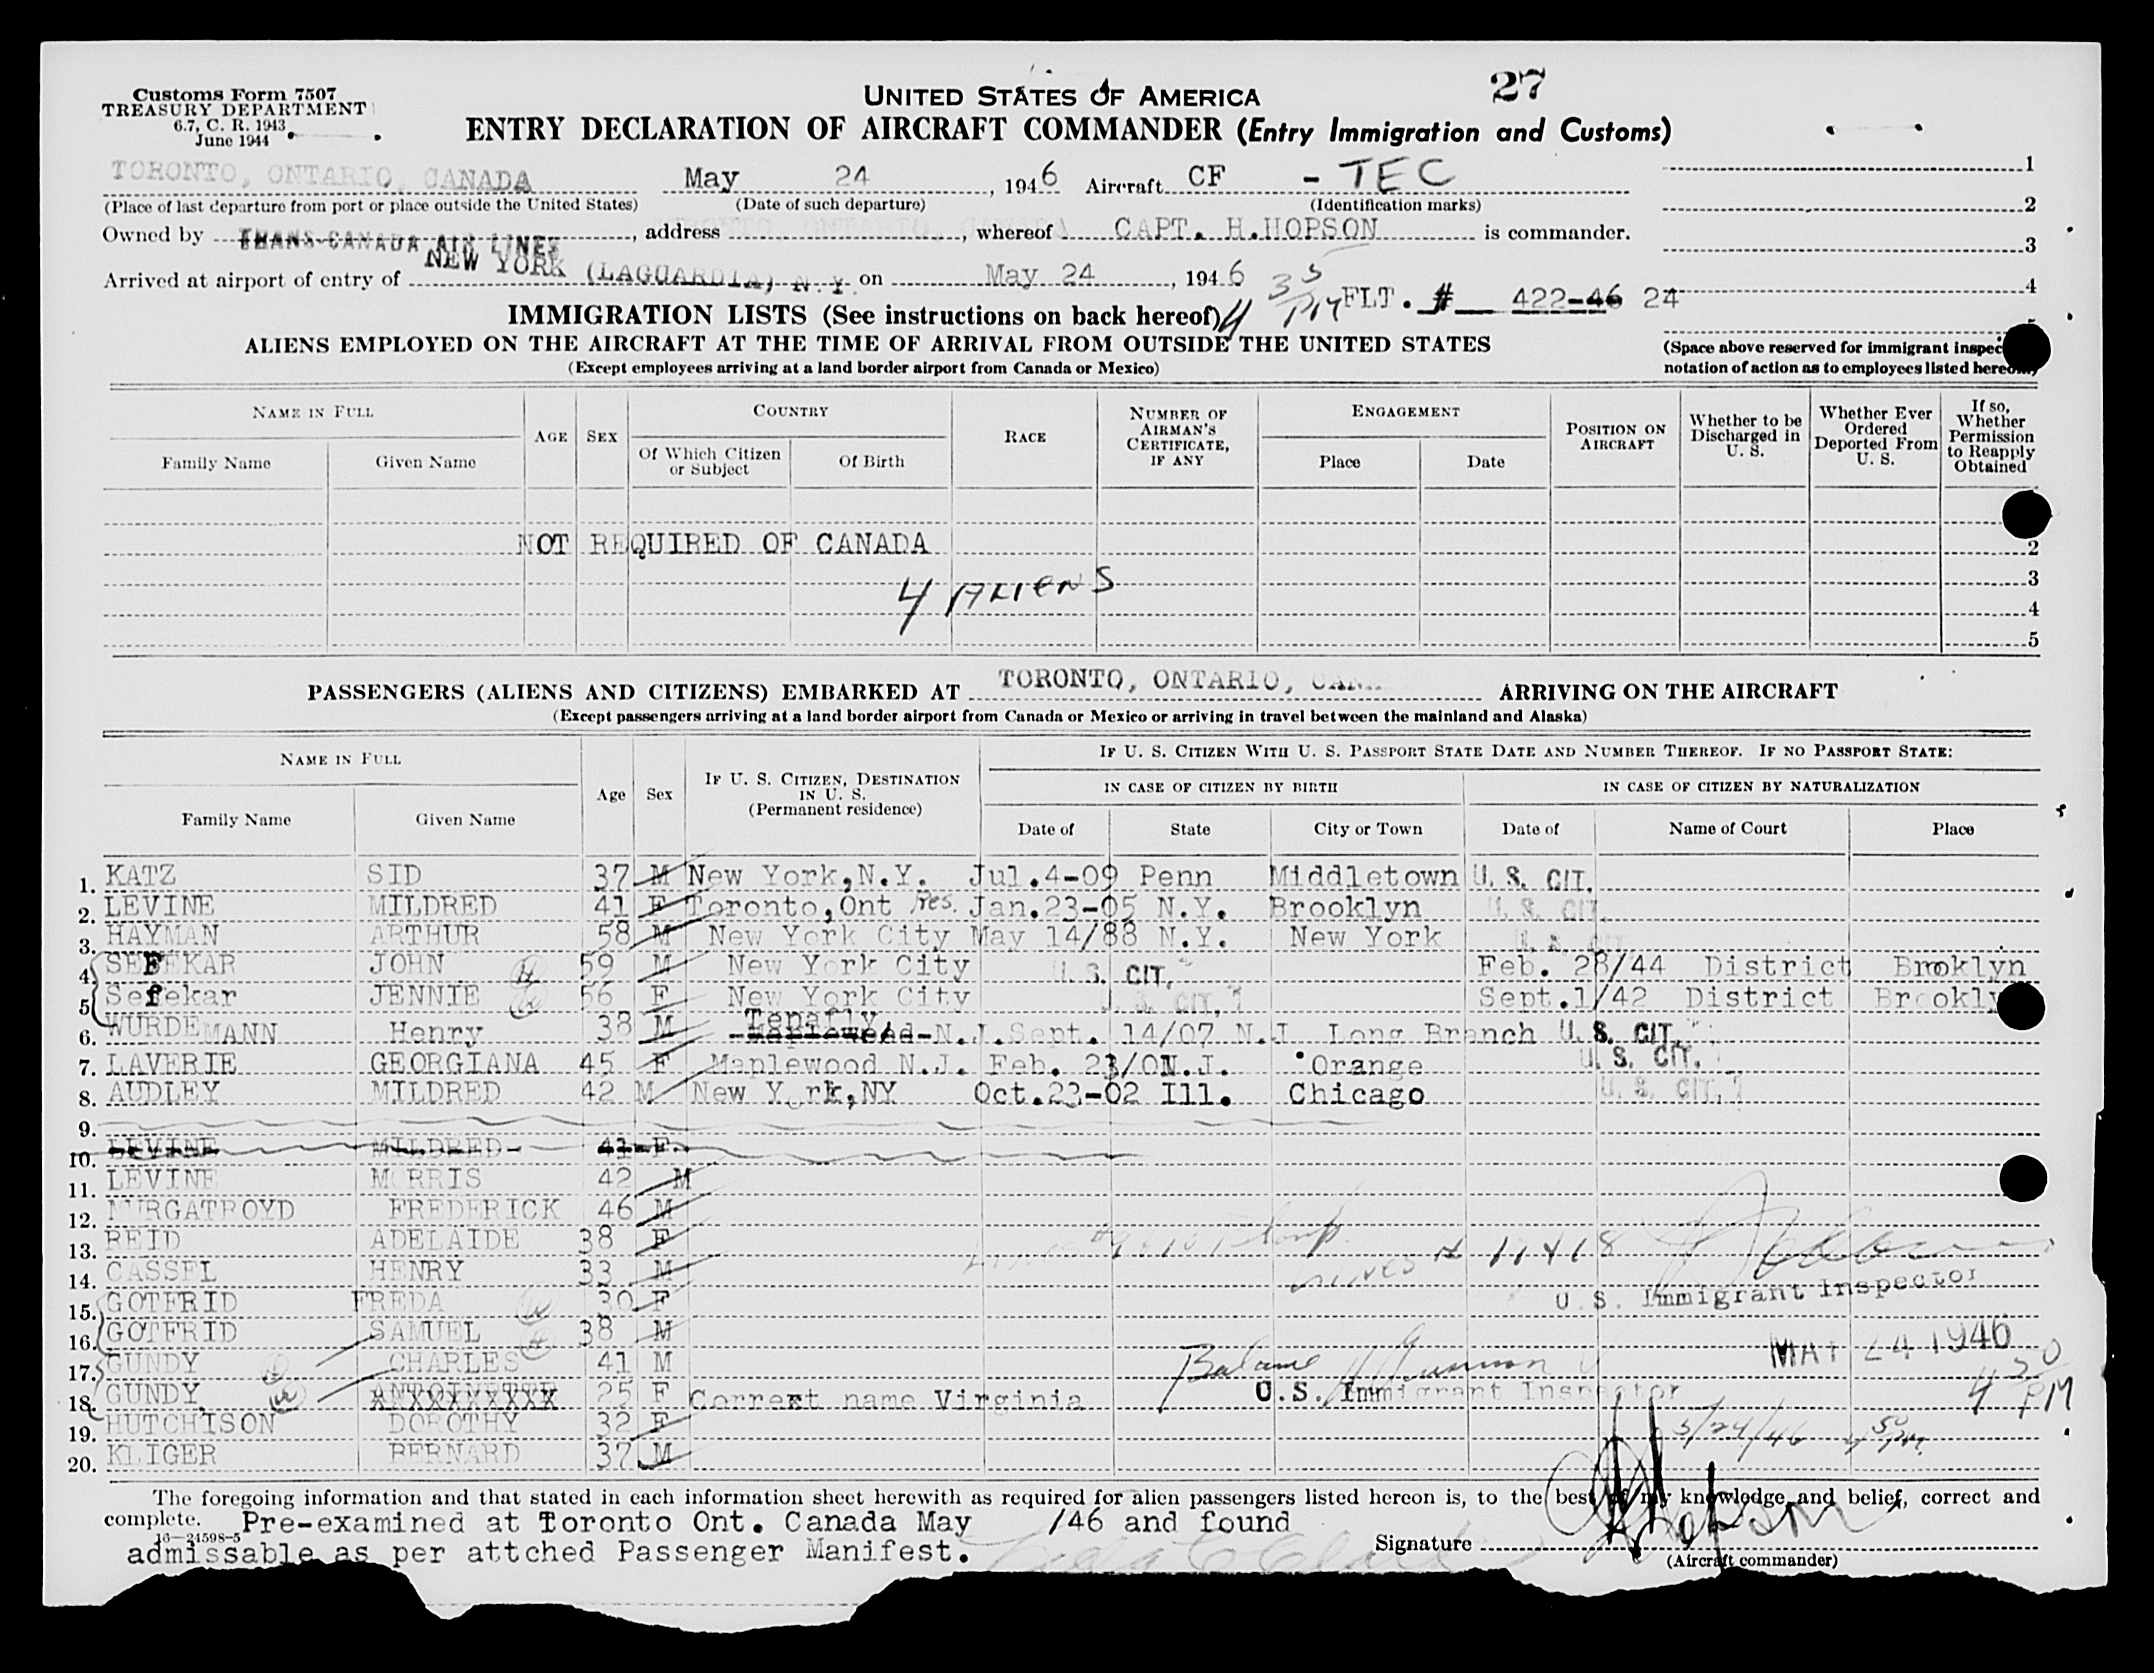 Customs Form 7507
TREASURY DEPARTMENT
6.7, C. R. 1943
June 1944
UNITED STATES OF AMERICA
27
ENTRY DECLARATION OF AIRCRAFT COMMANDER (Entry Immigration and Customs)
TORONTO, ONTARIO, CANADA May 24, 1946 Aircraft CF - TEC 1
(Place of last departure from port or place outside the United States) (Date of such departure) (Identification marks) 2
Owned by TRANS-CANADA AIR LINES, address TORONTO, ONTARIO, CANADA, whereof CAPT. H.HOPSON is commander. 3
Arrived at airport of entry of NEW YORK (LAGUARDIA) N.Y. on May 24, 1946 4
4 35 PM FLT. # 422-46 24
IMMIGRATION LISTS (See instructions on back hereof)
ALIENS EMPLOYED ON THE AIRCRAFT AT THE TIME OF ARRIVAL FROM OUTSIDE THE UNITED STATES
(Space above reserved for immigrant inspec
(Except employees arriving at a land border airport from Canada or Mexico)
notation of action as to employees listed hereon)
NAME IN FULL AGE SEX COUNTRY RACE NUMBER OF AIRMAN'S CERTIFICATE, IF ANY ENGAGEMENT POSITION ON AIRCRAFT Whether to be Discharged in U. S. Whether Ever Ordered Deported From U. S. If so, Whether Permission to Reapply Obtained
Family Name Given Name Of Which Citizen or Subject Of Birth Place Date
NOT REQUIRED OF CANADA 2
3
4 ALIENS 4
5
PASSENGERS (ALIENS AND CITIZENS) EMBARKED AT TORONTO, ONTARIO, CAN ARRIVING ON THE AIRCRAFT
(Except passengers arriving at a land border airport from Canada or Mexico or arriving in travel between the mainland and Alaska)
NAME IN FULL Age Sex IF U. S. CITIZEN, DESTINATION IN U. S. (Permanent residence) IF U. S. CITIZEN WITH U. S. PASSPORT STATE DATE AND NUMBER THEREOF. IF NO PASSPORT STATE:
IN CASE OF CITIZEN BY BIRTH IN CASE OF CITIZEN BY NATURALIZATION
Family Name Given Name Date of State City or Town Date of Name of Court Place
1. KATZ SID 37 M New York,N.Y. Jul.4-09 Penn Middletown U. S. CIT.
2. LEVINE MILDRED 41 F Toronto,Ont res. Jan.23-05 N.Y. Brooklyn U. S. CIT.
3. HAYMAN ARTHUR 58 M New York City May 14/88 N.Y. New York
4. SEFEKAR JOHN 59 M New York City U. S. CIT. Feb. 28/44 District Brooklyn
5. Sefekar JENNIE 56 F New York City U. S. CIT. Sept.1/42 District Brookly
6. WURDEMANN Henry 38 M Tenafly N.J. Sept. 14/07 N.J. Long Branch U. S. CIT.
7. LAVERIE GEORGIANA 45 F Maplewood N.J. Feb. N.J. Orange U. S. CIT.
8. AUDLEY MILDRED 42 M New York,NY Oct.23-02 Ill. Chicago U. S. CIT.
9.
10. LEVINE MILDRED 41 F.
11. LEVINE MORRIS 42 M
12. MURGATROYD FREDERICK 46 M
13. REID ADELAIDE 38 F
14. CASSEL HENRY 33 M
15. GOTFRID FREDA 30 F U. S. Immigrant Inspector
16. GOTFRID SAMUEL 38 M MAY 24 1946
17. GUNDY CHARLES 41 M 4 30 PM
18. GUNDY 25 F Corrext name Virginia U.S. Immigrant Inspector
19. HUTCHISON DOROTHY 32 F 5/24/46 4 50 PM
20. KLIGER BERNARD 37 M
The foregoing information and that stated in each information sheet herewith as required for alien passengers listed hereon is, to the best of my knowledge and belief, correct and
complete. Pre-examined at Toronto Ont. Canada May /46 and found
16—24598-5
admissable as per attched Passenger Manifest.
Signature Hopson
(Aircraft commander)